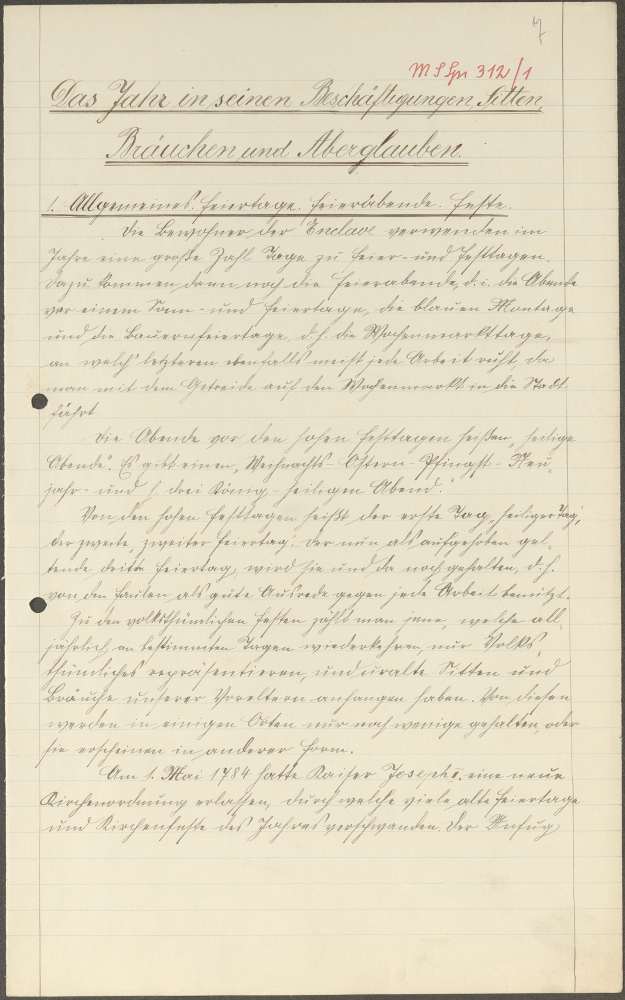 7
MS Spr 312/1
Das Jahr in seinen Beschäftigungen, Sitten,
Bräuchen und Aberglauben.
1. Allgemeines. Feiertage. Feierabende. Feste.
Die Bewohner der Enclave verwenden im
Jahre eine große Zahl Tage zu Feier- und Festtagen.
Dazu kommen dann noch die Feierabende, d. i. die Abende
vor einem Sonn- und Feiertage, die blauen Montage
und die Bauernfeiertage, d. h. die Wochenmarkttage,
an welch' letzteren ebenfalls meist jede Arbeit ruht, da
man mit dem Getreide auf den Wochenmarkt in die Stadt
fährt.
Die Abende vor den hohen Festtagen heißen „heilige
Abende". Es gibt einen „Weihnachts- Ostern- Pfingst- Neu-
jahr- und h. drei König- heiligen Abend."
Von den hohen Festtagen heißt der erste Tag „heiliger Tag",
der zweite „zweiter Feiertag". Der nun als aufgehoben gel-
tende dritte Feiertag, wird hie und da noch gehalten, d. h.
von den Faulen als gute Ausrede gegen jede Arbeit benützt.
Zu den volksthümlichen Festen zählt man jene, welche all-
jährlich an bestimmten Tagen wiederkehren, nur Volks-
thümliches repräsentieren, und uralte Sitten und
Bräuche unserer Voreltern anhangen haben. Von diesen
werden in einigen Orten nur noch wenige gehalten, oder
sie erscheinen in anderer Form.
Am 1. Mai 1784 hatte Kaiser Joseph II. eine neue
Kirchenordnung erlassen, durch welche viele alte Feiertage
und Kirchenfeste des Jahres verschwanden. Der Unfug,